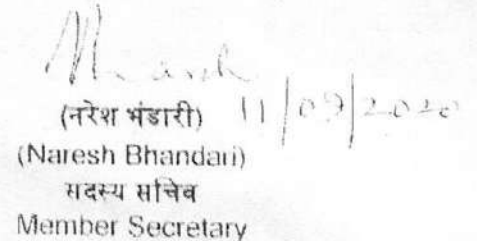 Naresh
(नरेश भंडारी) 11/09/2020
(Naresh Bhandari)
सदस्य सचिव
Member Secretary